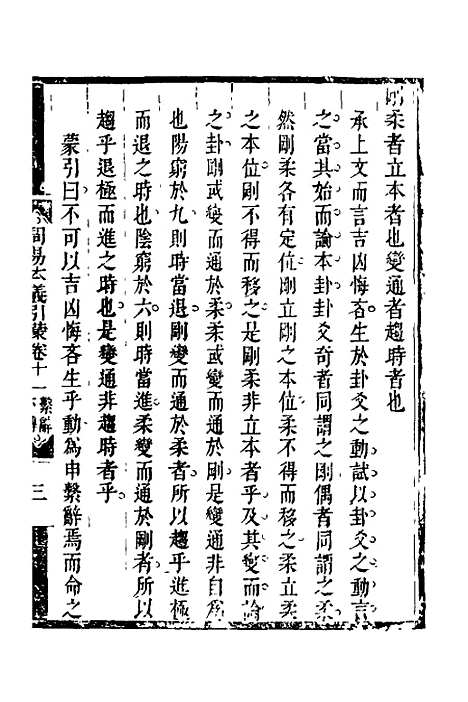 剛柔者立本者也變通者趨時者也
承上文而言吉凶悔吝生於卦爻之動試以卦爻之動言
之當其始而論本卦卦爻奇者同謂之剛偶者同謂之柔
然剛柔各有定位剛立剛之本位柔不得而移之柔立柔
之本位剛不得而移之是剛柔非立本者乎及其變而論
之卦剛或變而通於柔柔或變而通於剛是變通非自爲
也陽窮於九則時當退剛變而通於柔者所以趨乎進極
而退之時也陰窮於六則時當進柔變而通於剛者所以
趨乎退極而進之時也是變通非趨時者乎
蒙引曰不可以吉凶悔吝生乎動為申繫辭焉而命之
周易本義引蒙卷十一 繫辭下傳 三